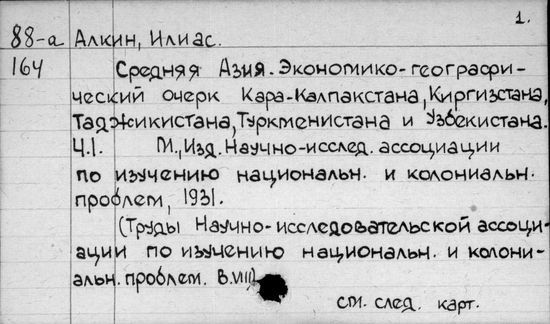 1.
88-а Алкин, Илиас.
164 Средняя Азия. Экономико-географи-
ческий очерк Кара-Калпакстана, Киргизстана,
Таджикистана, Туркменистана и Узбекистана.
Ч.1. М., Изд. Научно-исслед. ассоциации
по изучению национальн. и колониальн.
проблем, 1931.
(Труды Научно-исследовательской ассоци-
ации по изучению национальн. и колони-
альн. проблем. В. VIII)
см. след. карт.